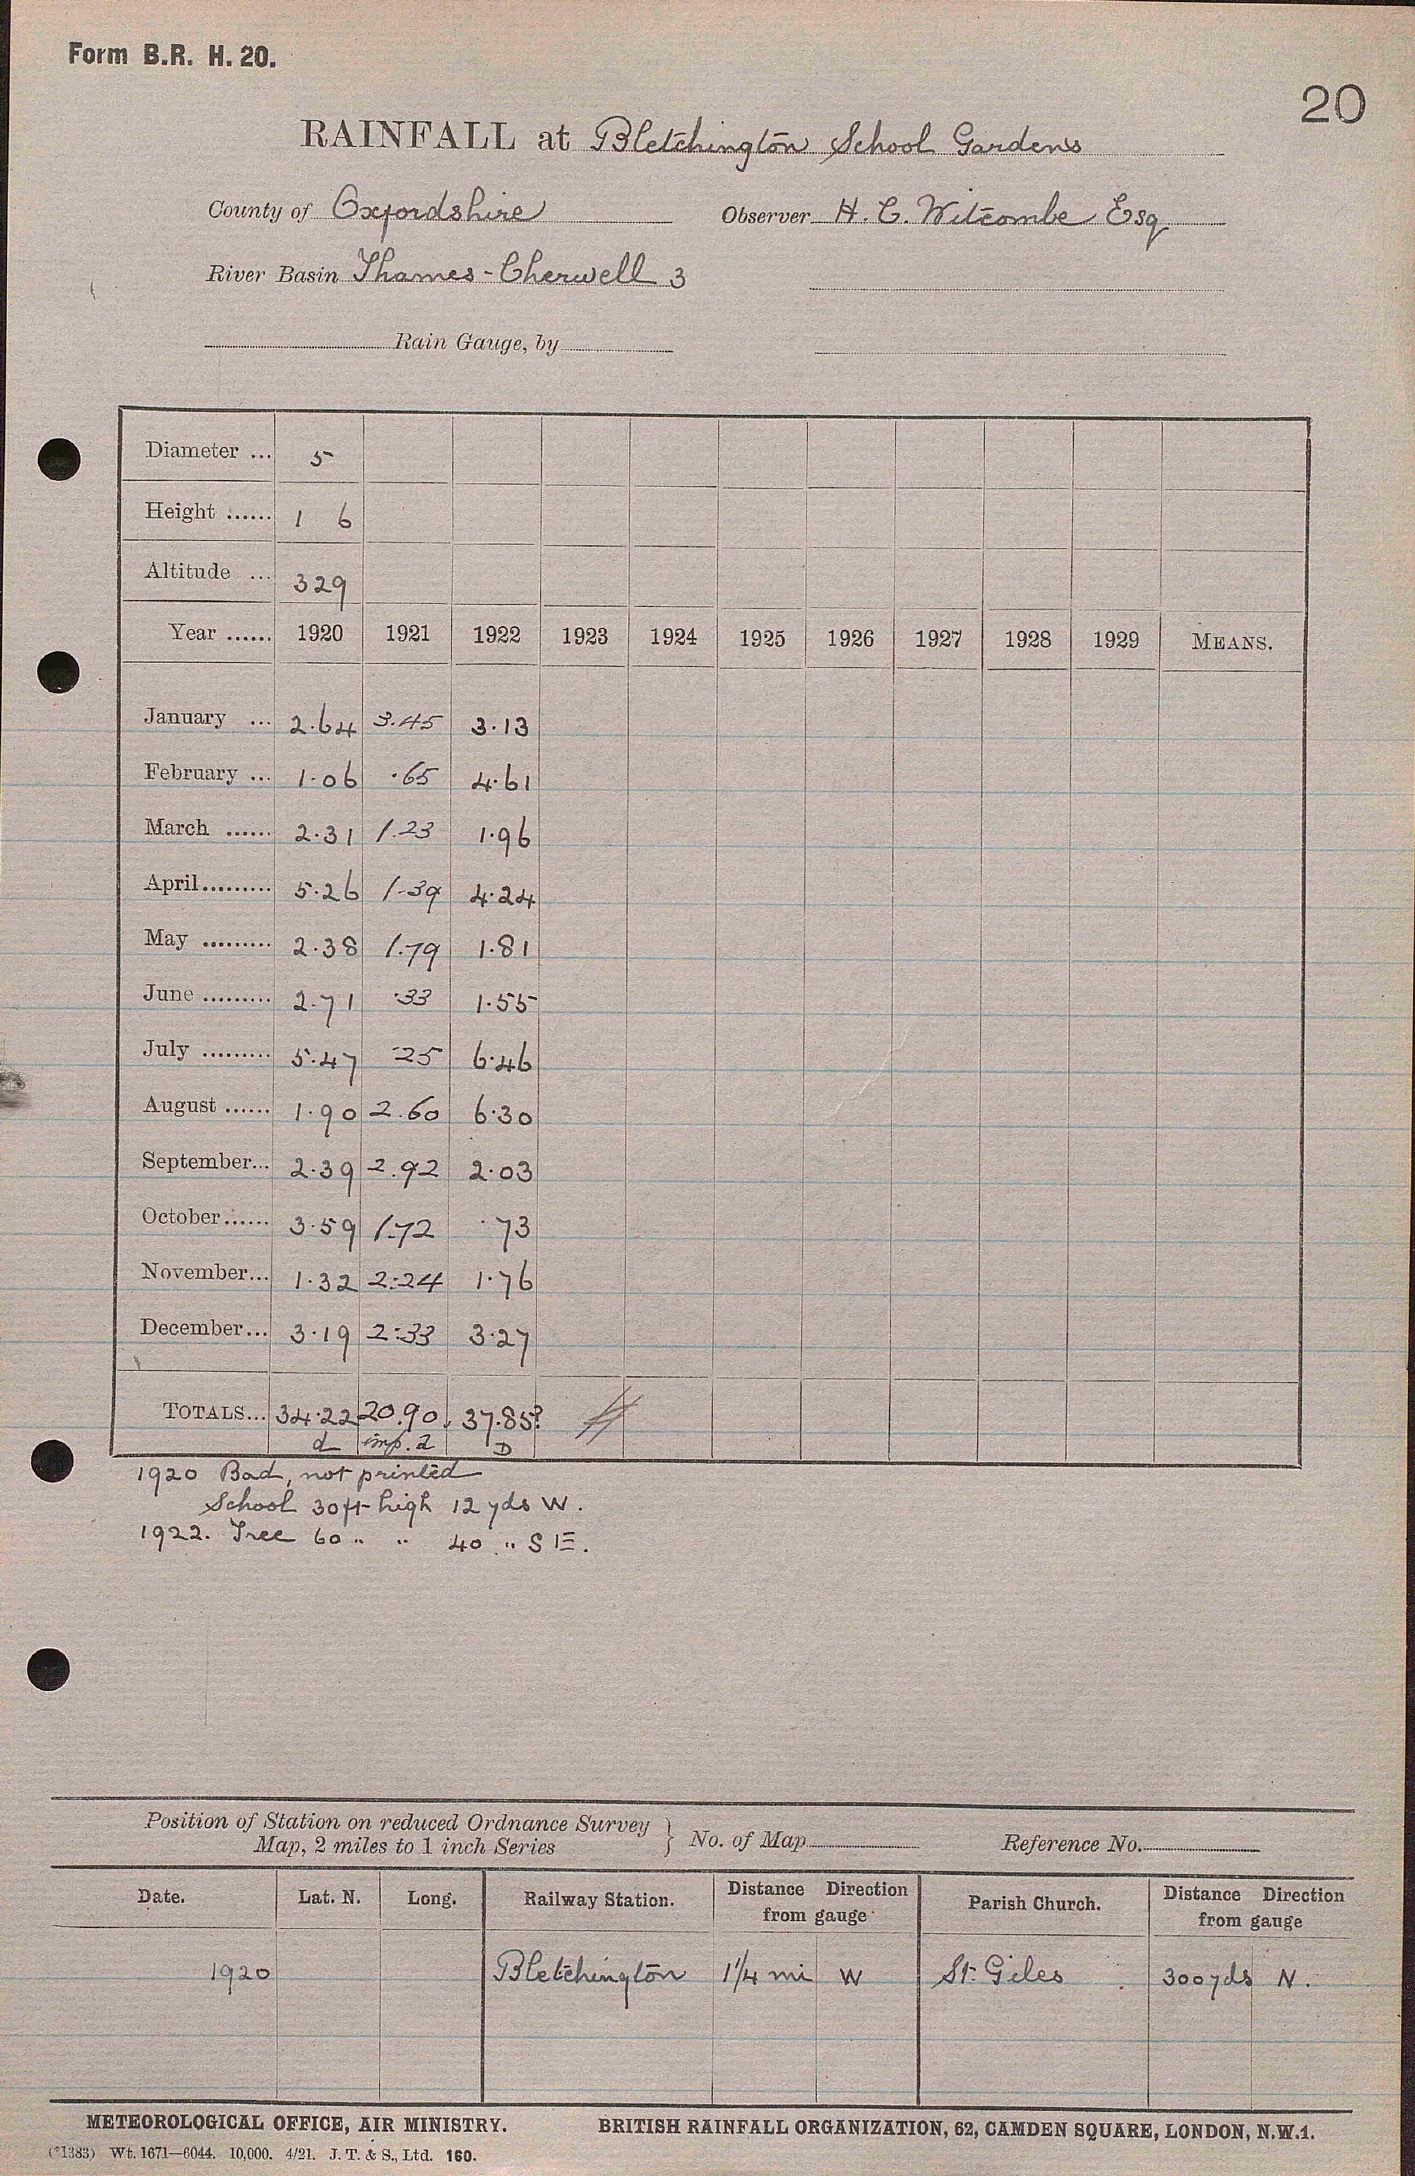 Form B.R. H. 20.
20
RAINFALL at Bletchington School Gardens
County of Oxfordshire Observer H. C. Witcombe Esq
River Basin Thames-Cherwell 3
Rain Gauge, by
Diameter ... 5
Height ...... 1 6
Altitude ... 329
Year ...... 1920 1921 1922 1923 1924 1925 1926 1927 1928 1929 MEANS.
January ... 2.64 3.45 3.13
February ... 1.06 .65 4.61
March ...... 2.31 1.23 1.96
April......... 5.26 1.39 4.24
May ......... 2.38 1.79 1.81
June ......... 2.71 .33 1.55
July ......... 5.47 .25 6.46
August ...... 1.90 2.60 6.30
September... 2.39 2.92 2.03
October...... 3.59 1.72 .73
November... 1.32 2.24 1.76
December... 3.19 2.33 3.27
TOTALS... 34.22 20.90. 37.85?
d imp. 2 D
1920 Bad, not printed
School 30ft high 12 yds W.
1922. Tree 60 " " 40 " S E.
Position of Station on reduced Ordnance Survey
Map, 2 miles to 1 inch Series } No. of Map Reference No.
Date. Lat. N. Long. Railway Station. Distance Direction from gauge Parish Church. Distance Direction from gauge
1920 Bletchington 1 1/4 mi W St. Giles 300 yds N.
METEOROLOGICAL OFFICE, AIR MINISTRY. BRITISH RAINFALL ORGANIZATION, 62, CAMDEN SQUARE, LONDON, N.W.1.
(*1383) Wt. 1671—6044. 10,000. 4/21. J. T. & S., Ltd. 160.